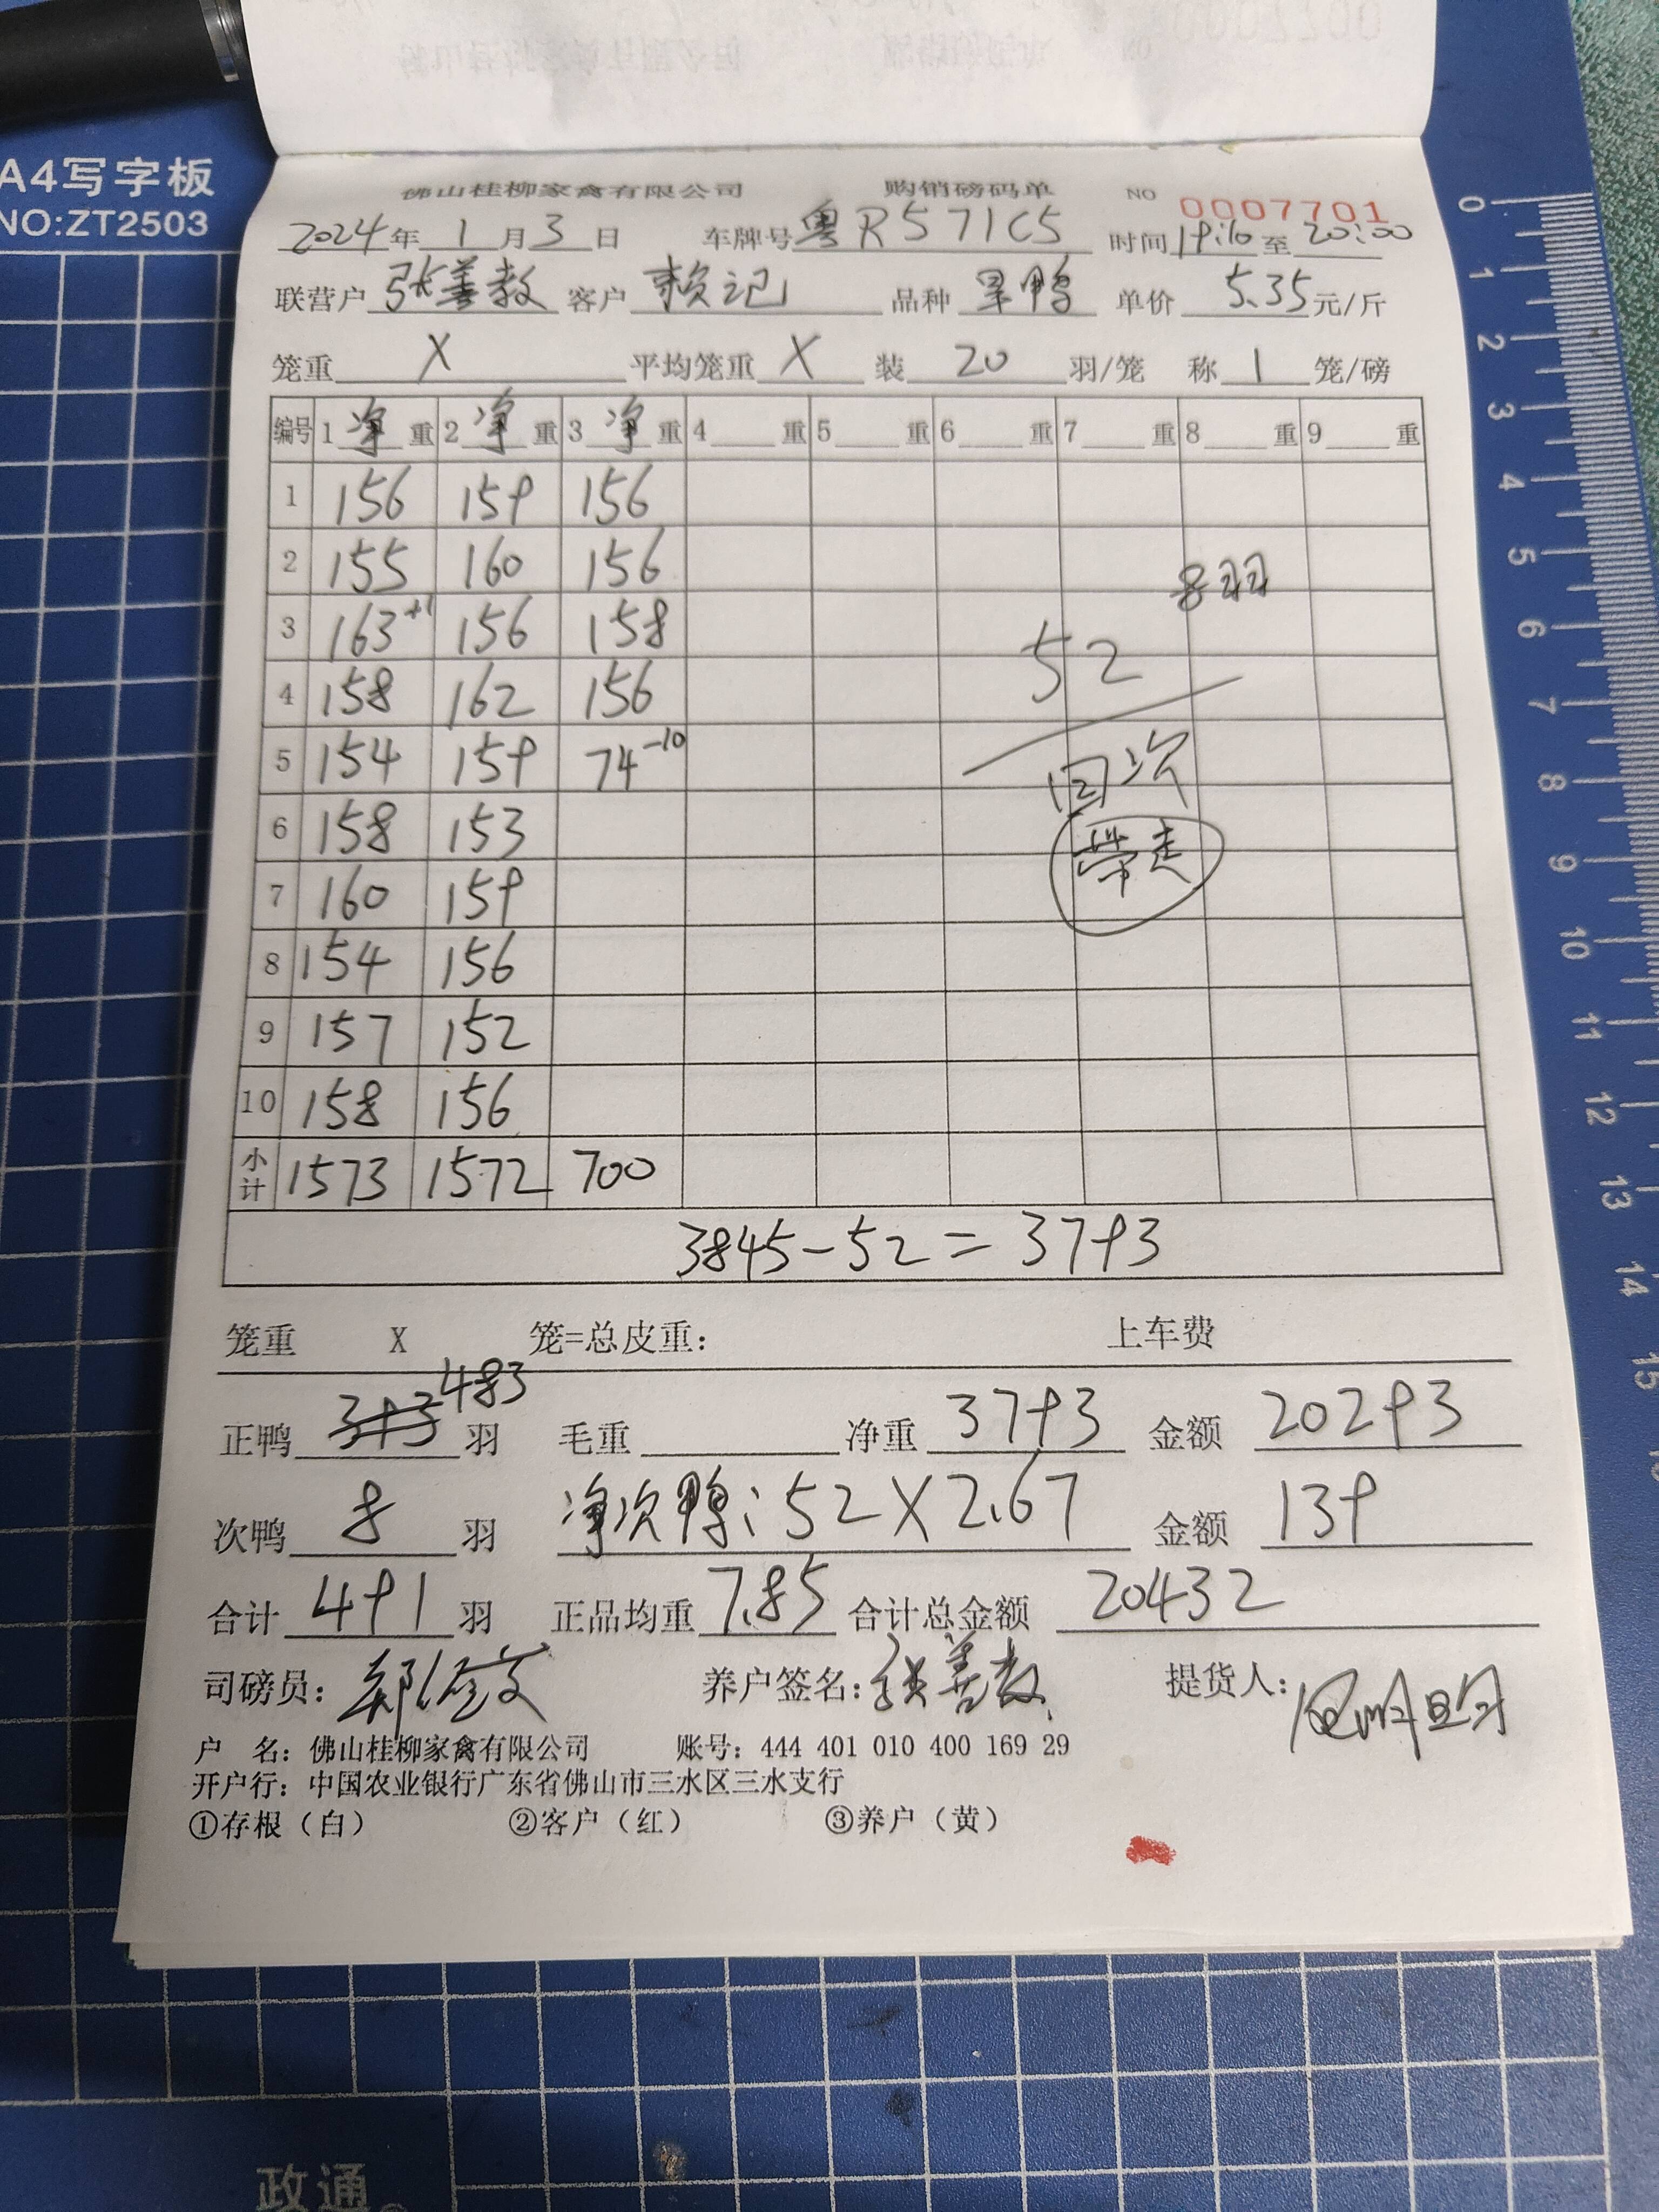 A4写字板
NO:ZT2503
佛山桂柳家禽有限公司 购销磅码单 NO 0007701
2024年1月3日 车牌号粤R571C5 时间19:10至20:00
联营户 张善教 客户 赖记 品种 单价 5.35元/斤
笼重 X 平均笼重 X 装 20 羽/笼 称 1 笼/磅
编号 1 净 重 2 净 重 3 净 重 4 重 5 重 6 重 7 重 8 重 9 重
1 156 159 156
2 155 160 156
8羽
3 163+1 156 158
52
4 158 162 156
5 154 159 74-10
回次
6 158 153
带走
7 160 159
8 154 156
9 157 152
10 158 156
小计 1573 1572 700
3845-52=3793
笼重 X 笼=总皮重: 上车费
正鸭 393 483 羽 毛重 净重 3793 金额 20293
次鸭 8 羽 净次鸭:52X2.67 金额 139
合计 491 羽 正品均重 7.85 合计总金额 20432
司磅员: 养户签名:张善教 提货人:
户 名: 佛山桂柳家禽有限公司 账号: 444 401 010 400 169 29
开户行: 中国农业银行广东省佛山市三水区三水支行
①存根(白) ②客户(红) ③养户(黄)
0 1 2 3 4 5 6 7 8 9 10 11 12 13 14 15
政通